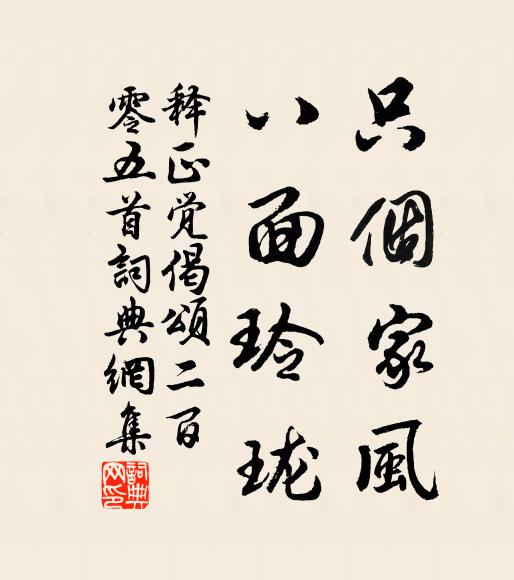 只個家風
八面玲瓏
释正觉偈頌二百
零五首詞典網集
詞典網印